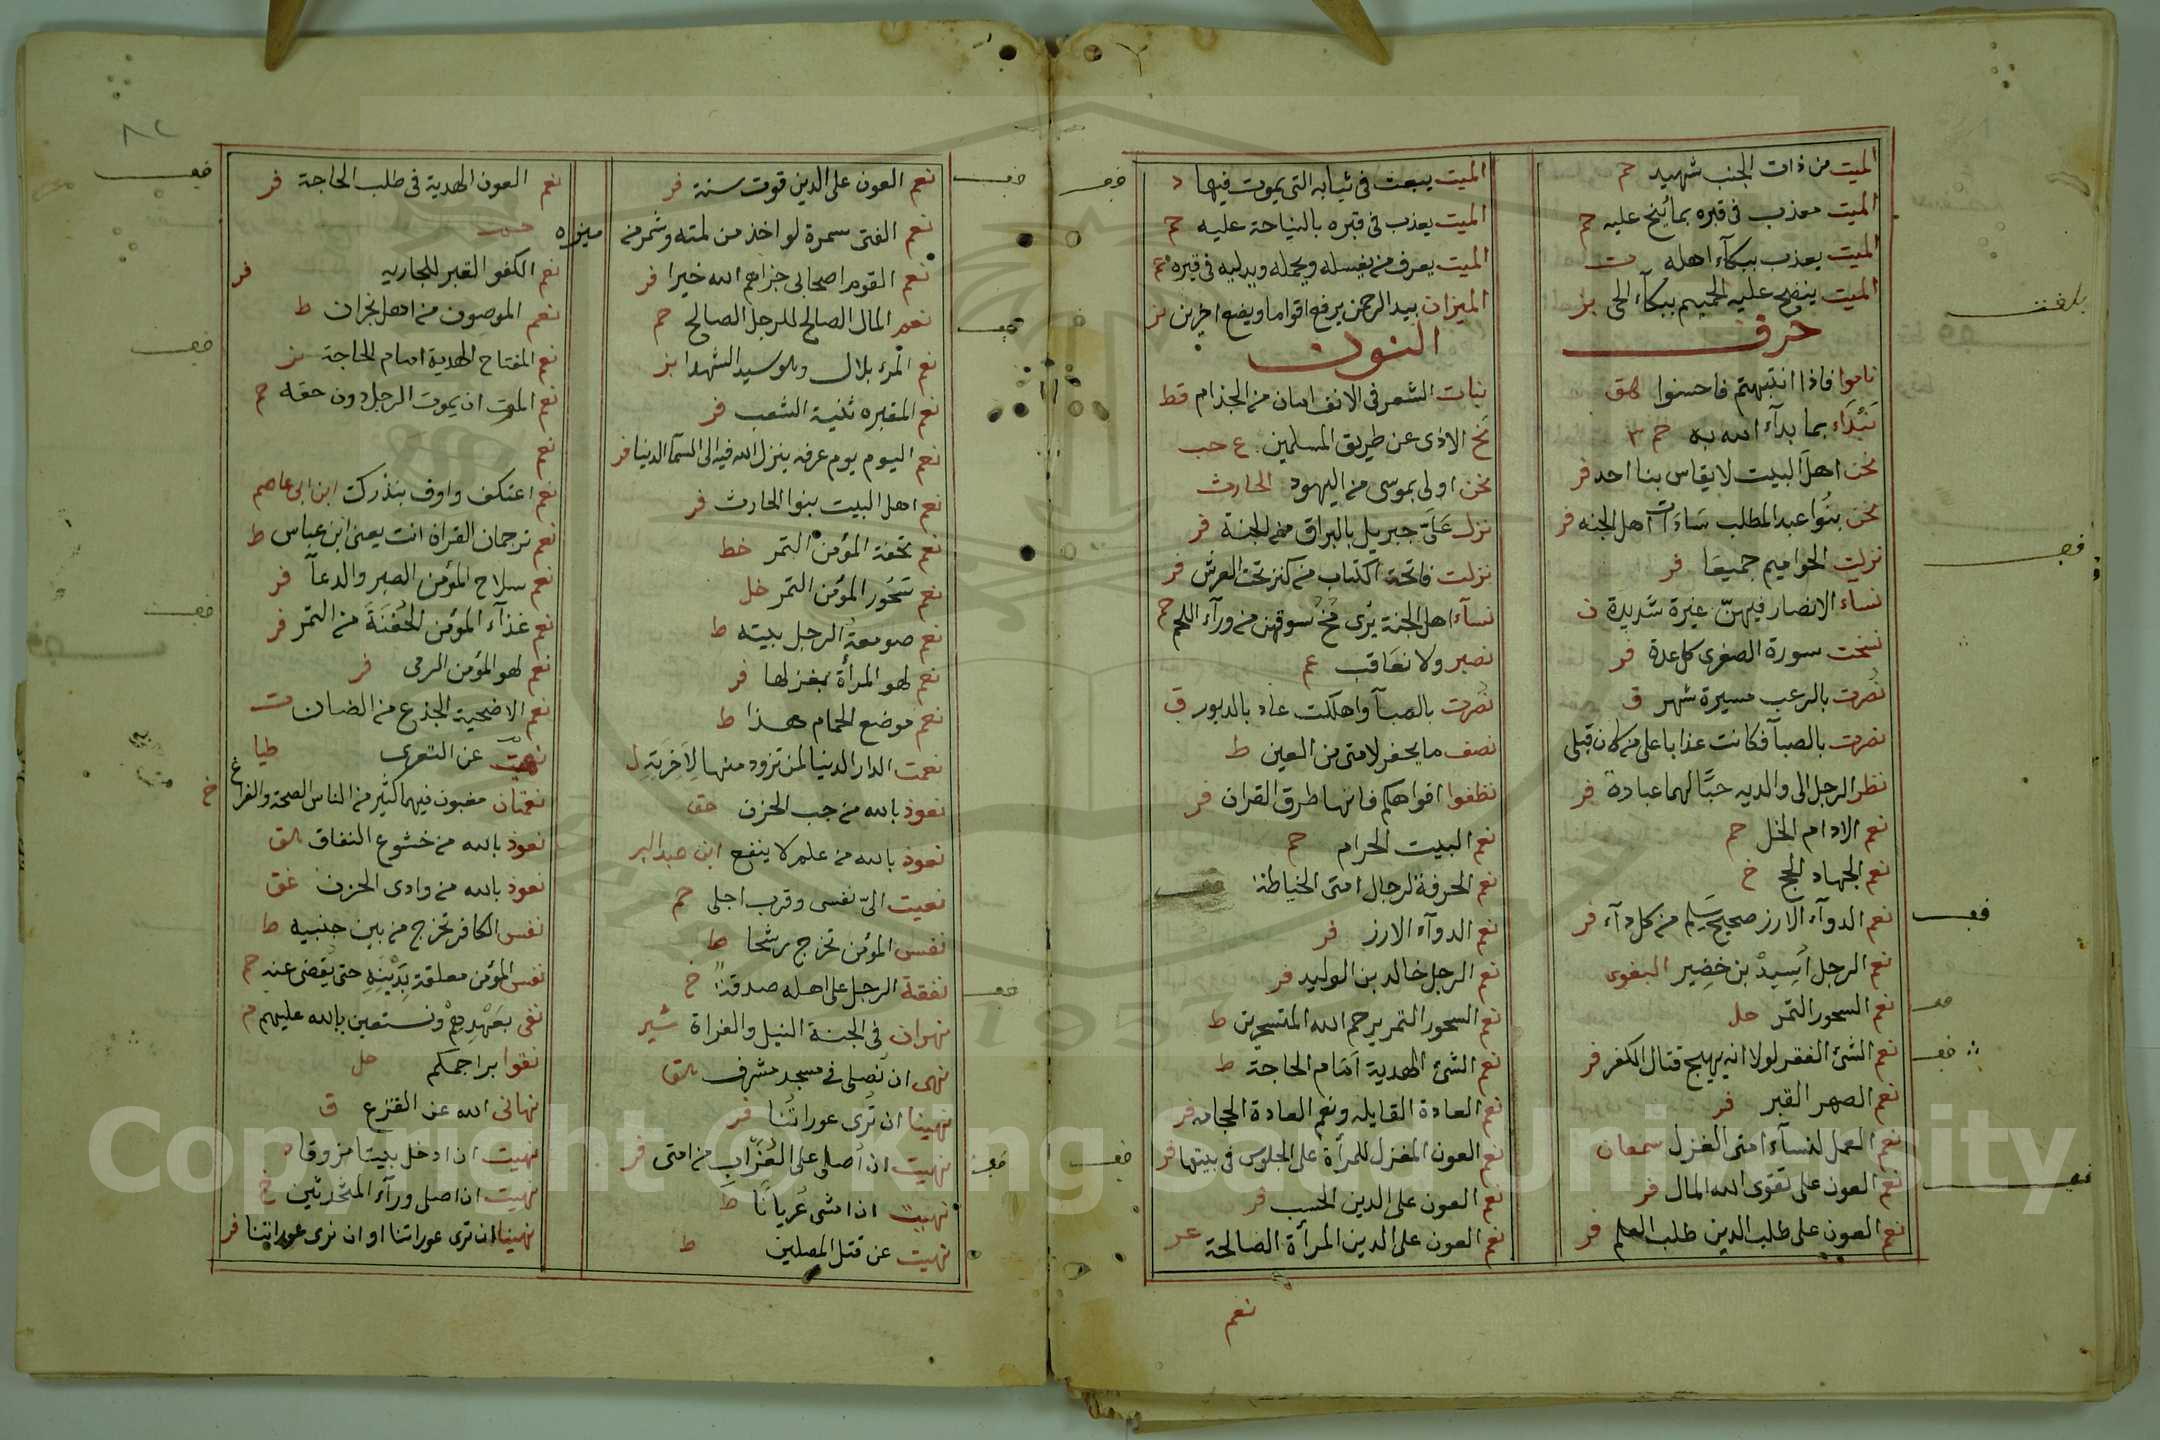 الميت من ذات الجنب شهيد حم
الميت معذب في قبره بما نيح عليه حم
الميت يعذب ببكآء اهله ت
الميت ينضح عليه الحميم ببكآء الحي بز
حرف
ناموا فاذا انتبهتم فاحسنوا هق
نَبْدَاء بما بدآء الله به حم ٣
نحن اهل البيت لا يقاس بنا احد فر
نحن بنُوا عبد المطلب سَادَات اهل الجنه فر
نزلت الحواميم جميعًا فر
نساء الانصار فيهنّ غيرة شديدة ن
نسخت سورة الصغرى كل عدة فر
نُصرت بالرعب مسيرة شهر ق
نصرت بالصبآ فكانت عذابا على من كان قبلى
نظر الرجل الى والديه حبًّا لهما عبادة فر
نعم الادام الخل حم
نعم الجهاد الحج خ
نعم الدوآء الآرز صحيح سليم من كل دآء فر
نعم الرجل اُسِيدْ بن خضِير البغوى
نعم السحور التمر حل
نعم الشئ الفقر لولا انه يهيج قتال الكفر فر
نعم الصهر القبر فر
نعم العمل لنسآء امتى الغزل سمعان
نعم العون على تقوى الله المال فر
نعم العون على طلب الدين طلب العلم فر
الميت يبعث في ثيابه التى يموت فيها د
الميت يعذب في قبره بالنياحة عليه حم
الميت يعرف من يغسله ويحمله ويدليه في قبره حم
الميزان بيد الرحمن يرفع اقواما ويضع اخرين بز
النون
نبات الشعر في الانف امان من الجذام قط
نَحِّ الاذى عن طريق المسلمين ع حب
نحن اولى بموسى من اليهود الحارث
نزل عَلَىّ جبريل بالبراق من الجنة فر
نزلت فاتحة الكتاب من كنز تحت العرش فر
نسآء اهل الجنة يُرى مُخ سوقهن من ورآء اللحم حم
نصبر ولا نعَاقب عم
نُصرت بالصبآ واهلكت عاد بالدبور ق
نصف ما يحفر لامتى من العين ط
نظفوا افواهكم فانها طرق القران فر
نعم البيت الحرام حم
نعم الحرفة لرجال امتى الخياطة
نعم الدوآء الارز فر
نعم الرجل خالد بن الوليد فر
نعم السحور التمر يرحم الله المتسحرين ط
نعم الشئ الهدية اَمَام الحاجة ط
نعم العادة القايله ونعم العادة الحجامه فر
نعم العون المغزل للمرأة على الجلوس في بيتها فر
نعم العون على الدين الحسب فر
نعم العون على الدين المرأة الصالحة عر
نعم
نعم العون على الدين قوت سنة فر
نعم الفتى سمرة لو اخذ من لمته وشمر من ميزره حم
نعم القوم اصحابى جزاهم الله خيرا فر
نعم المال الصالح للرجل الصالح حم
نعم المرء بلال وهو سيد الشهدا بز
نعم المقبره ثنية الشعب فر
نعم اليوم يوم عرفه ينزل الله فيه الى السمآ الدنيا فر
نعم اهل البيت بنوا الحارث فر
نعم تحفة المؤمن التمر خط
نعم سَحُور المؤمن التمر خل
نعم صومعة الرجل بيته ط
نعم لهو المرأة بمغزلها فر
نعم موضع الحمام هذا ط
نعمت الدار الدنيا لمن تزود منها لاَخِرَتِهِ ل
نعوذ بالله من جب الحزن هق
نعوذ بالله من علم لا ينفع ابن عبد البر
نعيت الىّ نفسى وقرب اجلى حم
نفس المؤمن تخرج رشحا ط
نفقة الرجل على اهله صدقة خ
نهران في الجنة النيل والفراة شير
نهى ان نُصلى في مسجد مشرف هق
نهينا ان تُرى عوراتُنا فر
نهيت ان اُصلى على العُزَّاب من امتى فر
نهيت ان امشى عُريانًا ط
نهيت عن قتل المصلين ط
نعم العون الهدية في طلب الحاجة فر
نعم الكفو القبر للجاريه فر
نعم الموصون من اهل نجران ط
نعم المفتاح الهدية امام الحاجة بز
نعم الموت ان يموت الرجل دون حقه حم
نعم
نعم اعتكف واوف بنذرك ابن ابى عاصم
نعم ترجمان القران انت يعنى ابن عباس ط
نعم سلاح المؤمن الصبر والدعآ فر
نعم غذآء المؤمن من التمر فر
نعم لهو المؤمن الرمى فر
نعم الاضحية الجذع من الضان ت
نهيت عن التعرى طيا
نعمتان مغبون فيهما كثير من الناس الصحة والفراغ خ
نعوذ بالله من خشوع النفاق هق
نعوذ بالله من وادى الحزن عق
نفس الكافر تخرج من بين جنبيه ط
نفس المؤمن معلقة بِدَيْنِهِ حتى يُقضى عنه حم
نفى بعَهْدِهِمْ ونستعين بالله عليهم م
نقوا براجمكم حل
نهانى الله عن القزع ق
نهيت ان ادخل بيتا مزوقا د
نهيت ان اصلى ورآء المتحدثين
نهينا ان ترى عوراتنا او ان نرى عوراتنا فر
Copyright © King Saud University
1957